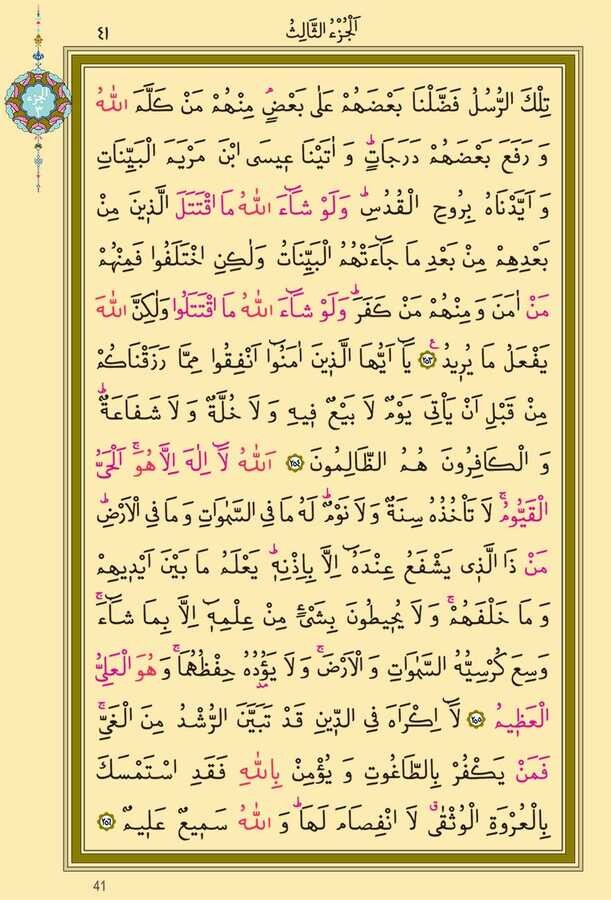 اَلْجُزْءُ الثَّالِثُ
٤١
الجزء
٣
تِلْكَ الرُّسُلُ فَضَّلْنَا بَعْضَهُمْ عَلٰى بَعْضٍۢ مِنْهُمْ مَنْ كَلَّمَ اللّٰهُ
وَ رَفَعَ بَعْضَهُمْ دَرَجَاتٍۜ وَ اٰتَيْنَا عٖيسَى ابْنَ مَرْيَمَ الْبَيِّنَاتِ
وَ اَيَّدْنَاهُ بِرُوحِ الْقُدُسِۜ وَلَوْ شَٓاءَ اللّٰهُ مَا اقْتَتَلَ الَّذٖينَ مِنْ
بَعْدِهِمْ مِنْ بَعْدِ مَا جَٓاءَتْهُمُ الْبَيِّنَاتُ وَلٰكِنِ اخْتَلَفُوا فَمِنْهُمْ
مَنْ اٰمَنَ وَ مِنْهُمْ مَنْ كَفَرَۜ وَلَوْ شَٓاءَ اللّٰهُ مَا اقْتَتَلُوا وَلٰكِنَّ اللّٰهَ
يَفْعَلُ مَا يُرٖيدُ ﴿٢٥٣﴾ يَٓا اَيُّهَا الَّذٖينَ اٰمَنُٓوا اَنْفِقُوا مِمَّا رَزَقْنَاكُمْ
مِنْ قَبْلِ اَنْ يَاْتِىَ يَوْمٌ لَا بَيْعٌ فٖيهِ وَ لَا خُلَّةٌ وَ لَا شَفَاعَةٌۜ
وَ الْكَافِرُونَ هُمُ الظَّالِمُونَ ﴿٢٥٤﴾ اَللّٰهُ لَٓا اِلٰهَ اِلَّا هُوَۚ اَلْحَىُّ
الْقَيُّومُۚ لَا تَاْخُذُهُ سِنَةٌ وَ لَا نَوْمٌۜ لَهُ مَا فِى السَّمٰوَاتِ وَ مَا فِى الْاَرْضِۜ
مَنْ ذَا الَّذٖى يَشْفَعُ عِنْدَهُٓ اِلَّا بِاِذْنِهٖۜ يَعْلَمُ مَا بَيْنَ اَيْدٖيهِمْ
وَ مَا خَلْفَهُمْۚ وَ لَا يُحٖيطُونَ بِشَىْءٍ مِنْ عِلْمِهٖٓ اِلَّا بِمَا شَٓاءَۚ
وَسِعَ كُرْسِيُّهُ السَّمٰوَاتِ وَ الْاَرْضَۚ وَ لَا يَؤُدُهُ حِفْظُهُمَاۚ وَ هُوَ الْعَلِىُّ
الْعَظٖيمُ ﴿٢٥٥﴾ لَٓا اِكْرَاهَ فِى الدّٖينِ قَدْ تَبَيَّنَ الرُّشْدُ مِنَ الْغَىِّۚ
فَمَنْ يَكْفُرْ بِالطَّاغُوتِ وَ يُؤْمِنْ بِاللّٰهِ فَقَدِ اسْتَمْسَكَ
بِالْعُرْوَةِ الْوُثْقٰىۗ لَا انْفِصَامَ لَهَاۜ وَ اللّٰهُ سَمٖيعٌ عَلٖيمٌ ﴿٢٥٦﴾
41